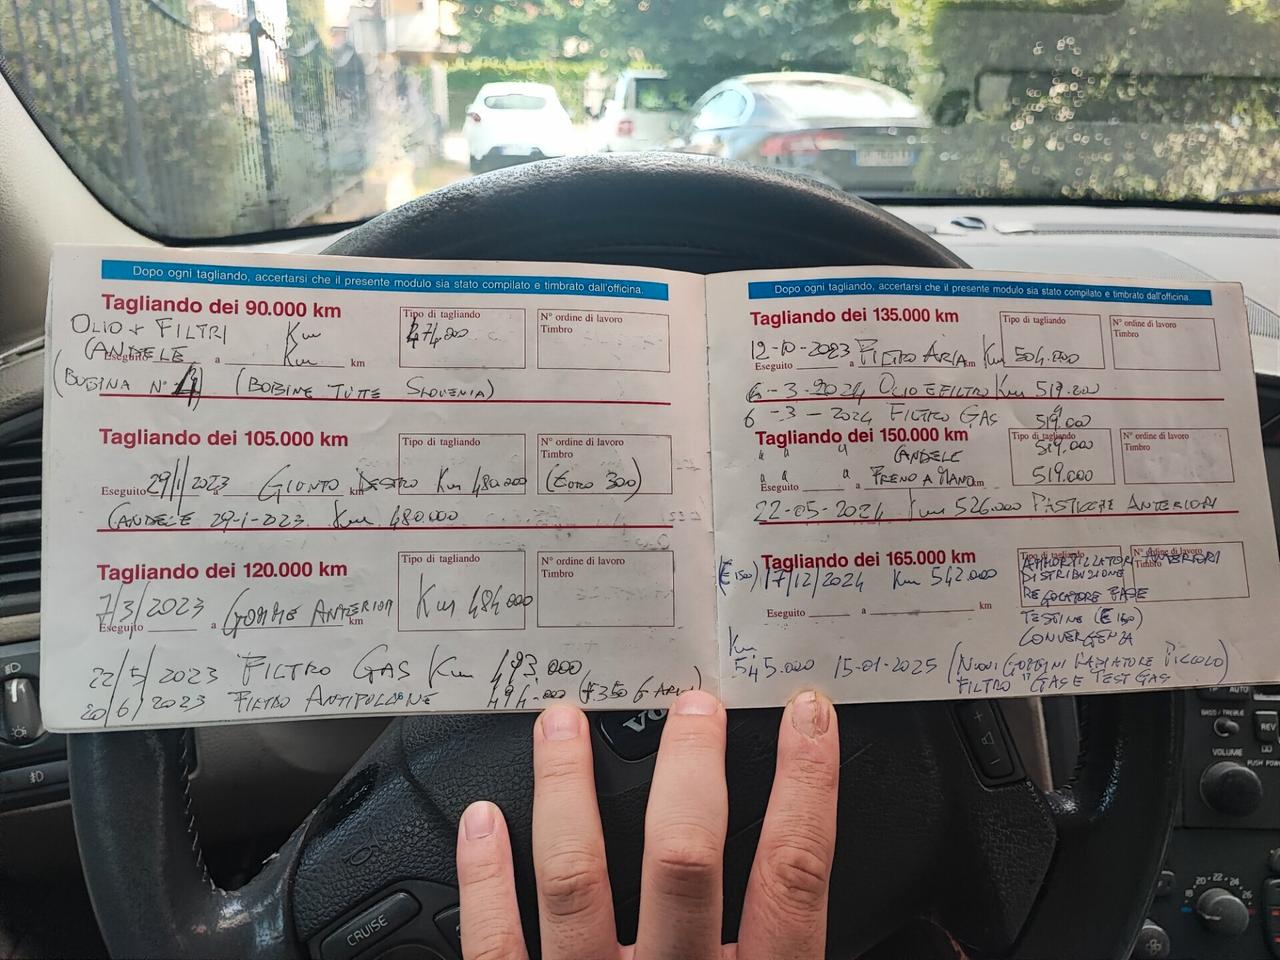 Dopo ogni tagliando, accertarsi che il presente modulo sia stato compilato e timbrato dall'officina.
Tagliando dei 90.000 km
OLIO + FILTRI Km
CANDELE Km
Eseguito a km
Tipo di tagliando
474.000
N° ordine di lavoro
Timbro
(BOBINA N° 4) (BOBINE TUTTE SLOVENIA)
Tagliando dei 105.000 km
Tipo di tagliando
N° ordine di lavoro
Timbro
Eseguito 29/1/2023 GIUNTO DESTRO Km 480.000 (EURO 300)
CANDELE 29-1-2023 Km 480000
Tagliando dei 120.000 km
Tipo di tagliando
N° ordine di lavoro
Timbro
7/3/2023 GOMME ANTERIORI Km 484000
Eseguito a km
22/5/2023 FILTRO GAS Km 493.000
20/6/2023 494.000
Dopo ogni tagliando, accertarsi che il presente modulo sia stato compilato e timbrato dall'officina.
Tagliando dei 135.000 km
Tipo di tagliando
N° ordine di lavoro
Timbro
12-10-2023 FILTRO ARIA Km 504.000
Eseguito a km
6-3-2024 OLIO E FILTRO Km 519.000
6-3-2024 FILTRO GAS 519.000
Tagliando dei 150.000 km
Tipo di tagliando
N° ordine di lavoro
Timbro
" " " CANDELE 519.000
" " " FRENO A MANO 519.000
Eseguito km
22-05-2024 Km 526.000 PASTICCHE ANTERIORI
Tagliando dei 165.000 km
Tipo di tagliando
N° ordine di lavoro
Timbro
(€ 1500) 17/12/2024 Km 542.000
AMMORTIZZATORI ANTERIORI
DISTRIBUZIONE
REGOLATORE FASE
TESTINE (€ 150)
CONVERGENZA
Eseguito a km
Km
545.000 15-01-2025 (NUOVI RADIATORE PICCOLO)
FILTRO GAS E TEST GAS
VO
CRUISE
AUTO
BASS/TREBLE
REV
VOLUME
PUSH POWER
18 20 22 24 26